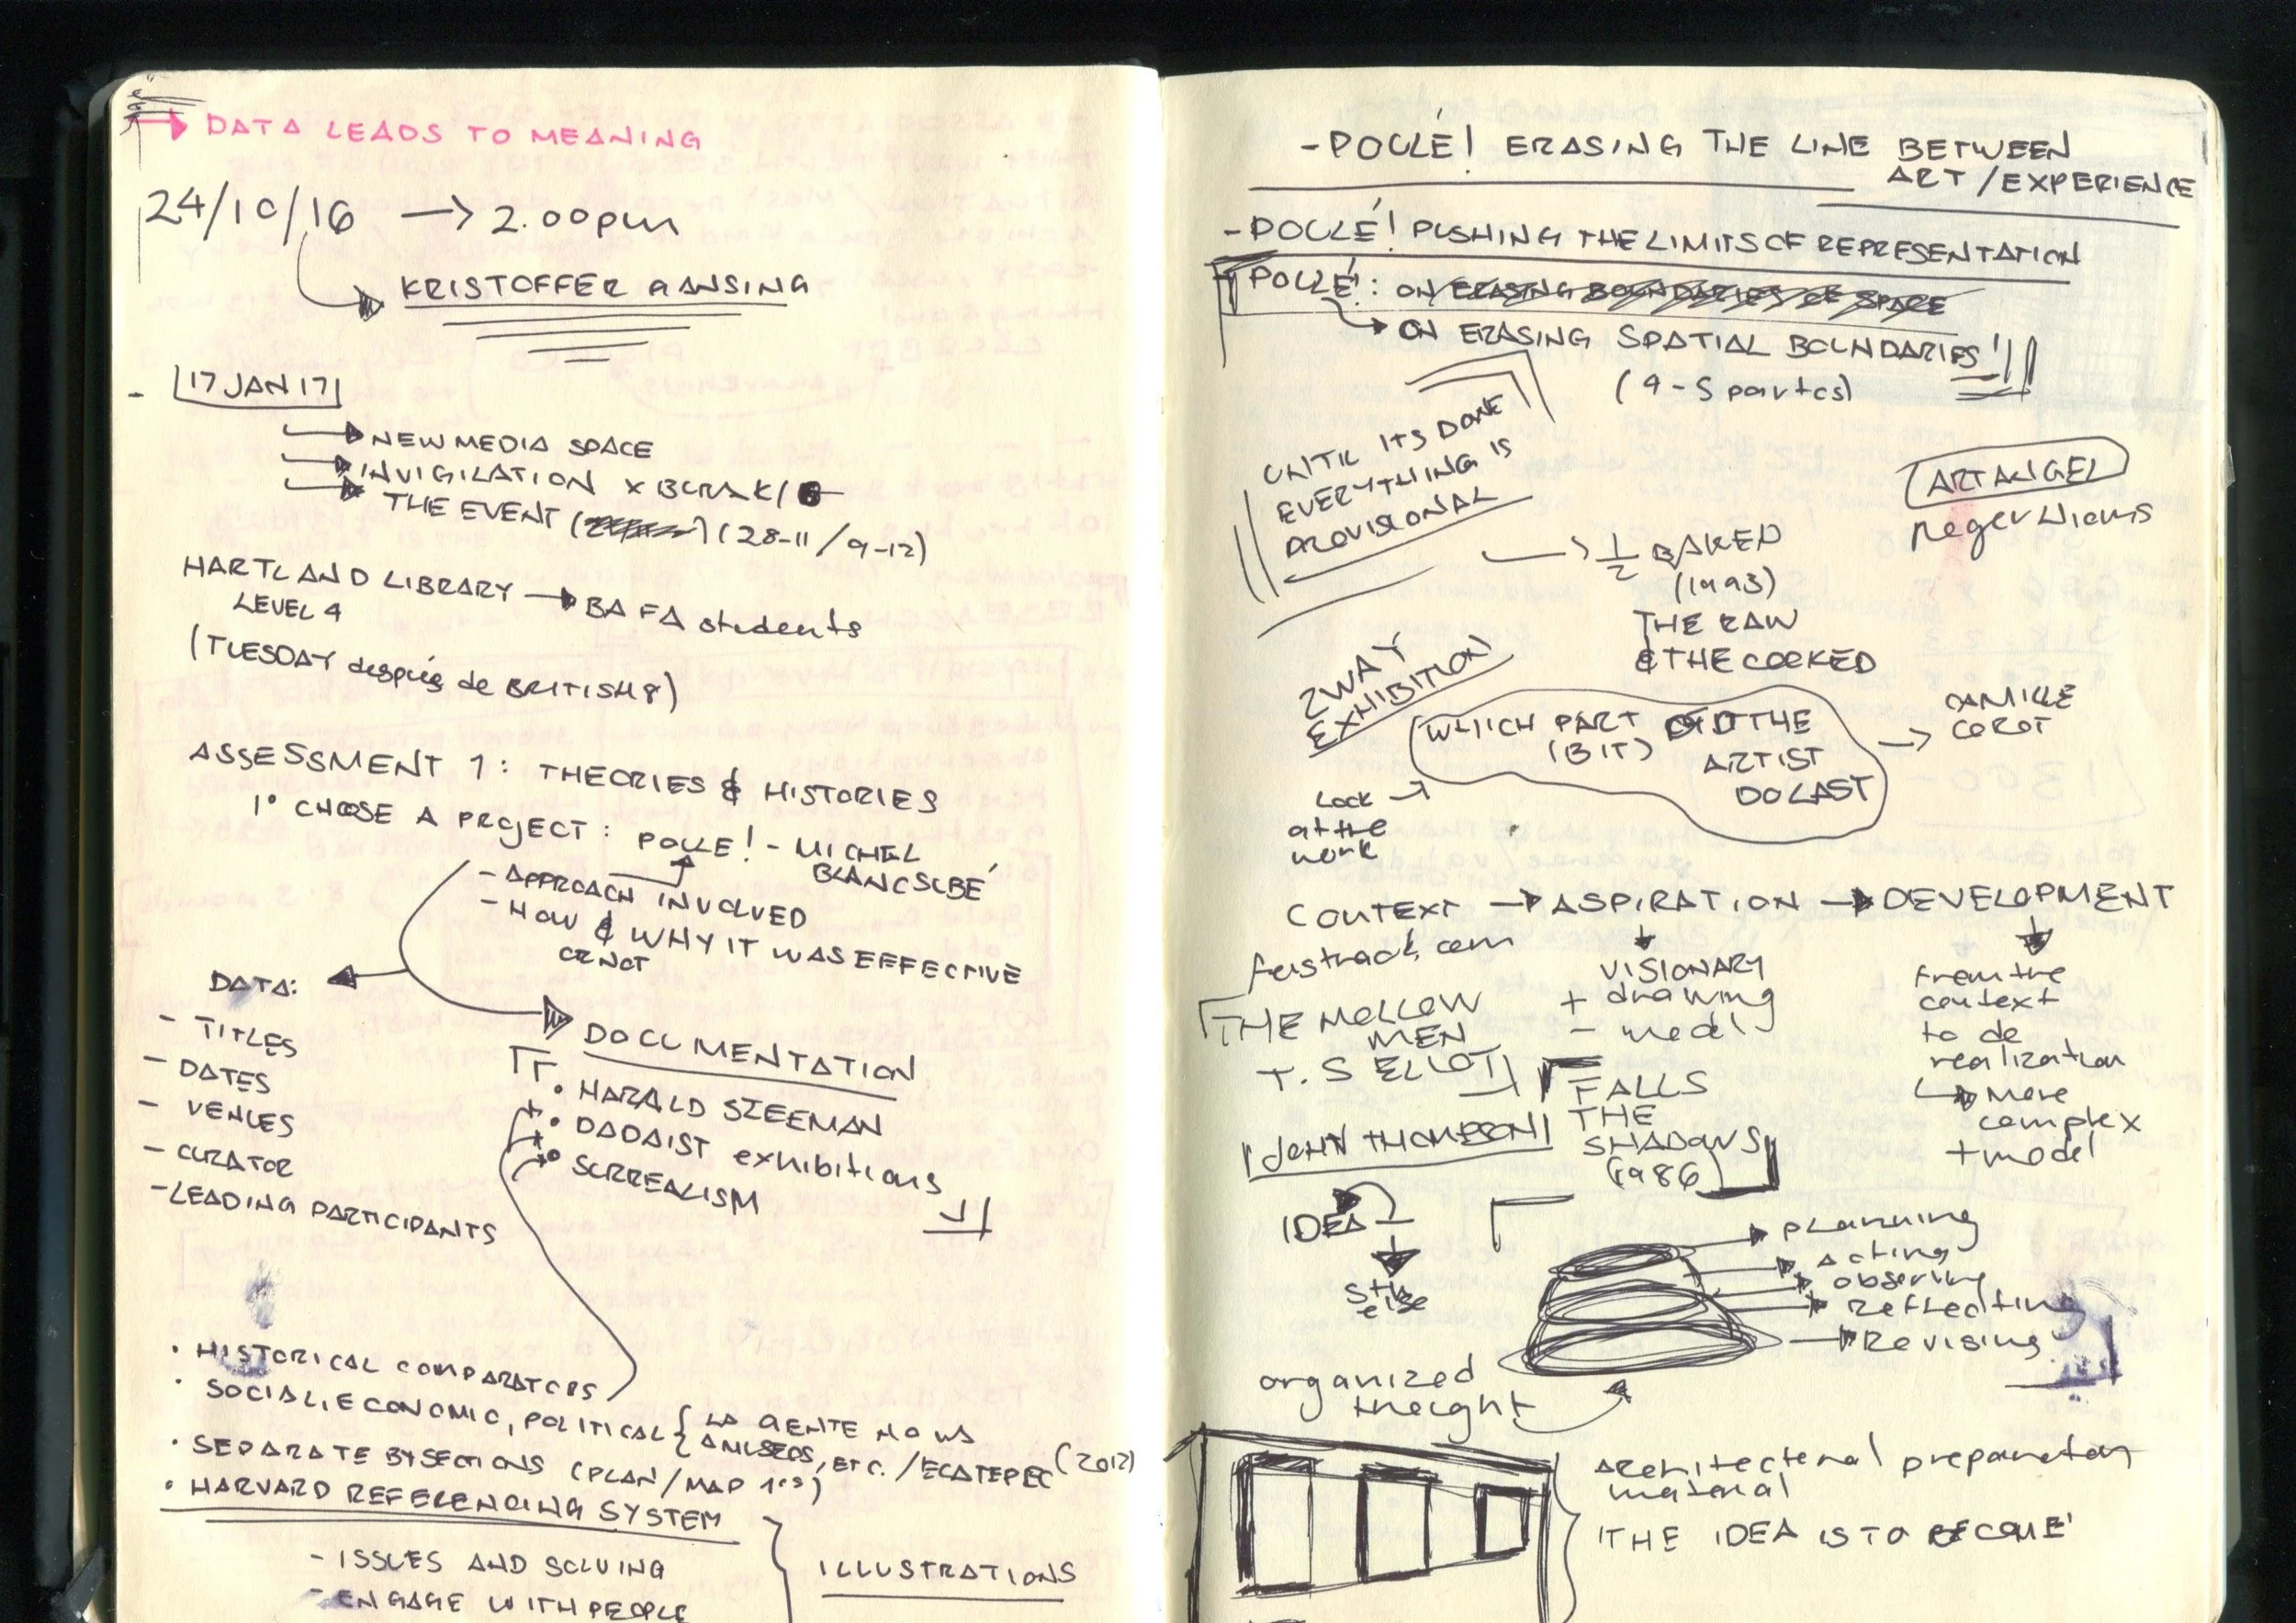 DATA LEADS TO MEANING
24/10/16 → 2.00pm
KRISTOFFER GANSING
- 17 JAN 17
NEW MEDIA SPACE
INVIGILATION X
THE EVENT (28-11 / 9-12)
HARTLAND LIBRARY → BA FA students
LEVEL 4
(TUESDAY después de BRITISH 8)
ASSESSMENT 1: THEORIES & HISTORIES
1° CHOOSE A PROJECT: POULE! - MICHEL
BLANCSUBÉ
- APPROACH INVOLVED
- HOW & WHY IT WAS EFFECTIVE
OR NOT
DATA:
- TITLES
- DATES
- VENUES
- CURATOR
- LEADING PARTICIPANTS
DOCUMENTATION
• HARALD SZEEMAN
• DADAIST exhibitions
• SURREALISM
• HISTORICAL COMPARATORS
• SOCIAL, ECONOMIC, POLITICAL { LA GENTE NO VA
A MUSEOS, ETC. / ECATEPEC (2012)
• SEPARATE BY SECTIONS (PLAN/MAP)
• HARVARD REFERENCING SYSTEM
- ISSUES AND SOLVING
- ENGAGE WITH PEOPLE
ILLUSTRATIONS
- POULE! ERASING THE LINE BETWEEN
ART / EXPERIENCE
- POULE! PUSHING THE LIMITS OF REPRESENTATION
POULE!: ON ERASING BOUNDARIES OF SPACE
ON ERASING SPATIAL BOUNDARIES
(4-5 partes)
UNTIL ITS DONE
EVERYTHING IS
PROVISIONAL
ARTANGEL
→ 1/2 BAKED
(1993)
THE RAW
& THE COOKED
2WAY
EXHIBITION
WHICH PART DID THE
(BIT) ARTIST
DO LAST
→ CAMILLE
COROT
Look
at the
work
CONTEXT → ASPIRATION → DEVELOPMENT
fastrack.com
VISIONARY
+ drawing
- model
From the
context
to de
realization
More
complex
+ model
THE HOLLOW
MEN
T.S ELLOT
FALLS
THE
SHADOWS
(1986)
JOHN THOMPSON
IDEA
sth
else
planning
acting
observing
Reflecting
Revising
organized
thought
Architectural preparatory
material
'THE IDEA IS TO BECOME'